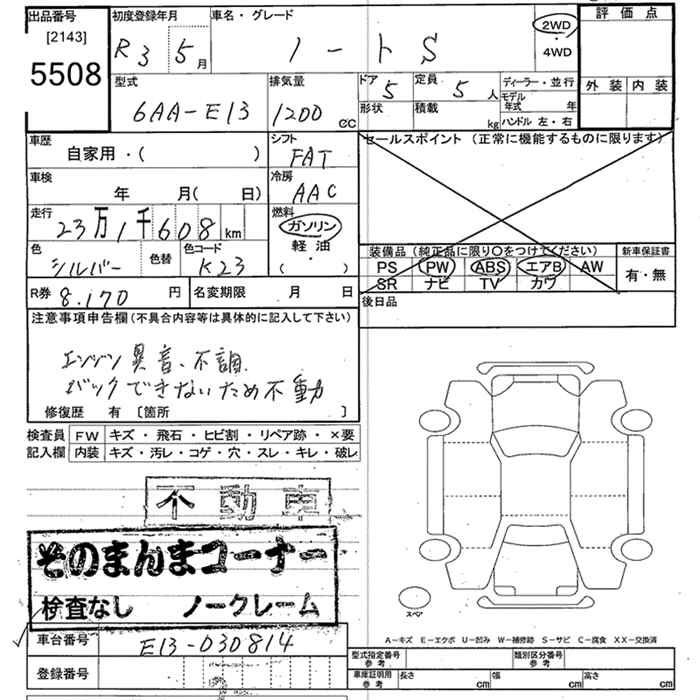 出品番号
[2143]
5508
初度登録年月
R3 5月
車名・グレード
ノート S
2WD
・
4WD
評価点
外装 内装
型式
6AA-E13
排気量
1200 cc
ドア
5
定員
5 人
形状
積載
kg
ディーラー・並行
モデル年式 年
ハンドル 左・右
車歴
自家用・( )
シフト
FAT
セールスポイント (正常に機能するものに限ります)
車検
年 月( 日)
冷房
AAC
走行
23万1千608km
燃料
ガソリン
軽油
( ・ )
色
シルバー
色替
色コード
K23
装備品 (純正品に限り○をつけてください)
PS PW ABS エアB AW
SR ナビ TV カワ
新車保証書
有・無
R券 8.170 円
名変期限 月 日
後日品
注意事項申告欄(不具合内容等は具体的に記入して下さい)
エンジン異音、不調
バックできないため不動
修復歴 有 [箇所 ]
検査員記入欄
FW キズ・飛石・ヒビ割・リペア跡・×要
内装 キズ・汚レ・コゲ・穴・スレ・キレ・破レ
不動車
そのまんまコーナー
検査なし ノークレーム
スペア
車台番号 E13-030814
登録番号
A-キズ E-エクボ U-凹み W-補修跡 S-サビ C-腐食 XX-交換済
型式指定番号
参考
類別区分番号
参考
車庫証明用
参考
長さ cm 幅 cm 高さ cm